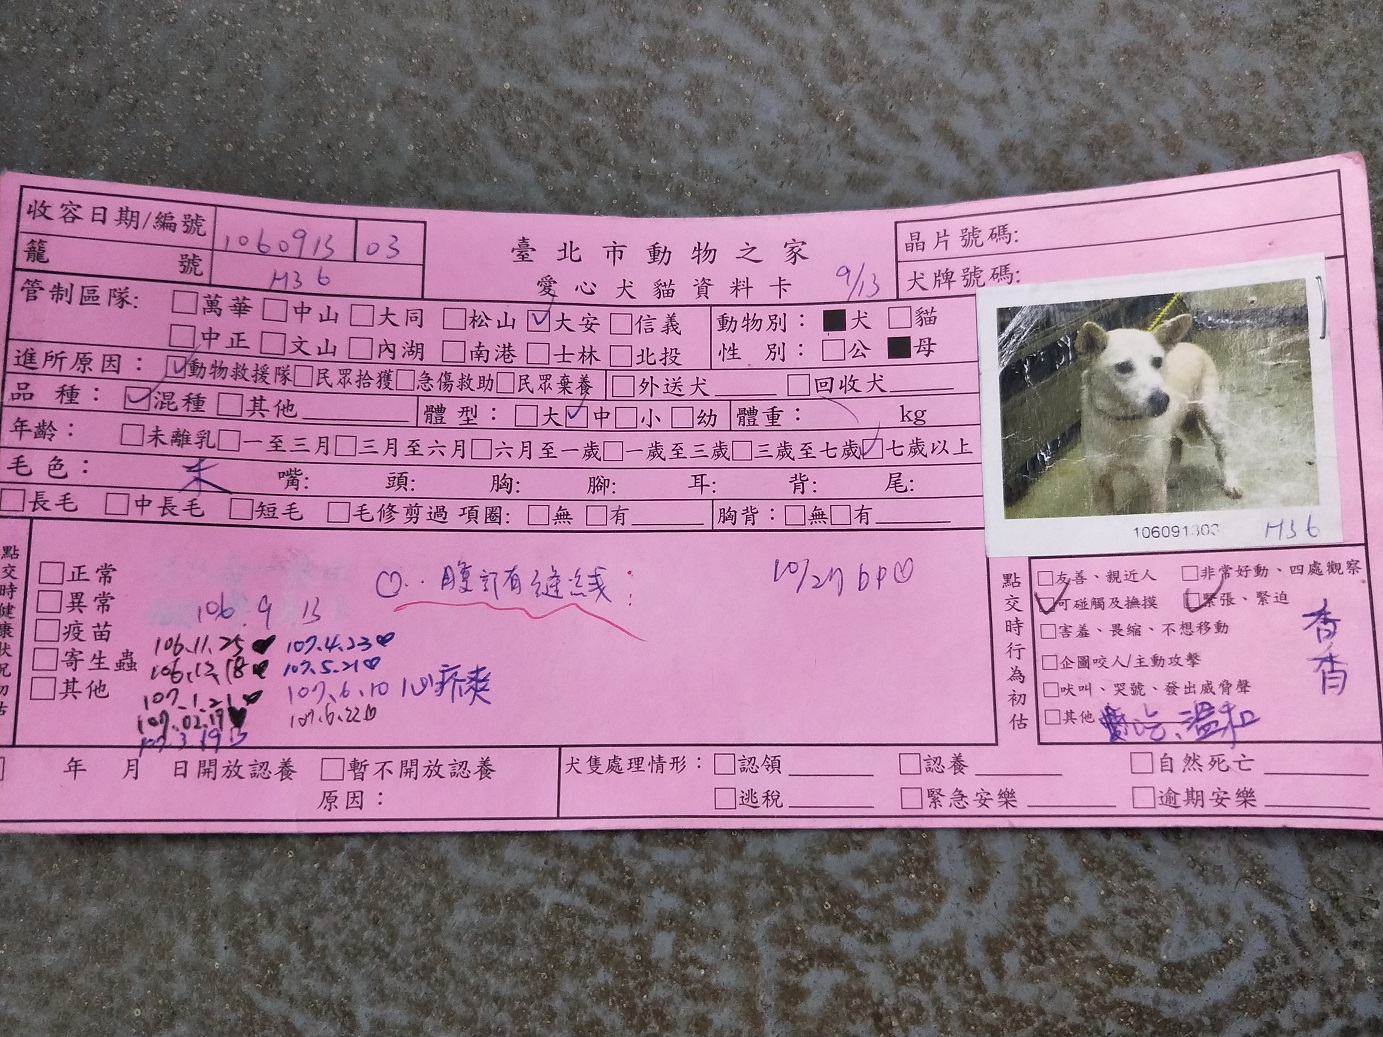 收容日期/編號 1060913 03
籠 號 H36
臺北市動物之家
愛心犬貓資料卡 9/13
晶片號碼:
犬牌號碼:
管制區隊: □萬華 □中山 □大同 □松山 ☑大安 □信義
□中正 □文山 □內湖 □南港 □士林 □北投
動物別: ■犬 □貓
性 別: □公 ■母
進所原因: ☑動物救援隊 □民眾拾獲 □急傷救助 □民眾棄養 □外送犬 □回收犬
品 種: ☑混種 □其他 體 型: □大 ☑中 □小 □幼 體重: kg
年齡: □未離乳 □一至三月 □三月至六月 □六月至一歲 □一歲至三歲 □三歲至七歲 ☑七歲以上
毛色: 米 嘴: 頭: 胸: 腳: 耳: 背: 尾:
□長毛 □中長毛 □短毛 □毛修剪過 項圈: □無 □有 胸背: □無 □有
1060913 H36
點交時健康狀況初估
□正常
□異常
□疫苗
□寄生蟲
□其他
腹部有縫线
10/27
106.9.13
106.11.25
106.12.18
107.1.21
107.02.17
107.3.19
107.4.23
107.5.21
107.6.10 心疥爽
107.6.22
點交時行為初估
□友善、親近人 □非常好動、四處觀察
☑可碰觸及撫摸 ☑緊張、緊迫
□害羞、畏縮、不想移動
□企圖咬人/主動攻擊
□吠叫、哭號、發出威脅聲
□其他 溫和
香香
□ 年 月 日開放認養 □暫不開放認養
原因:
犬隻處理情形: □認領 □認養 □自然死亡
□逃稅 □緊急安樂 □逾期安樂